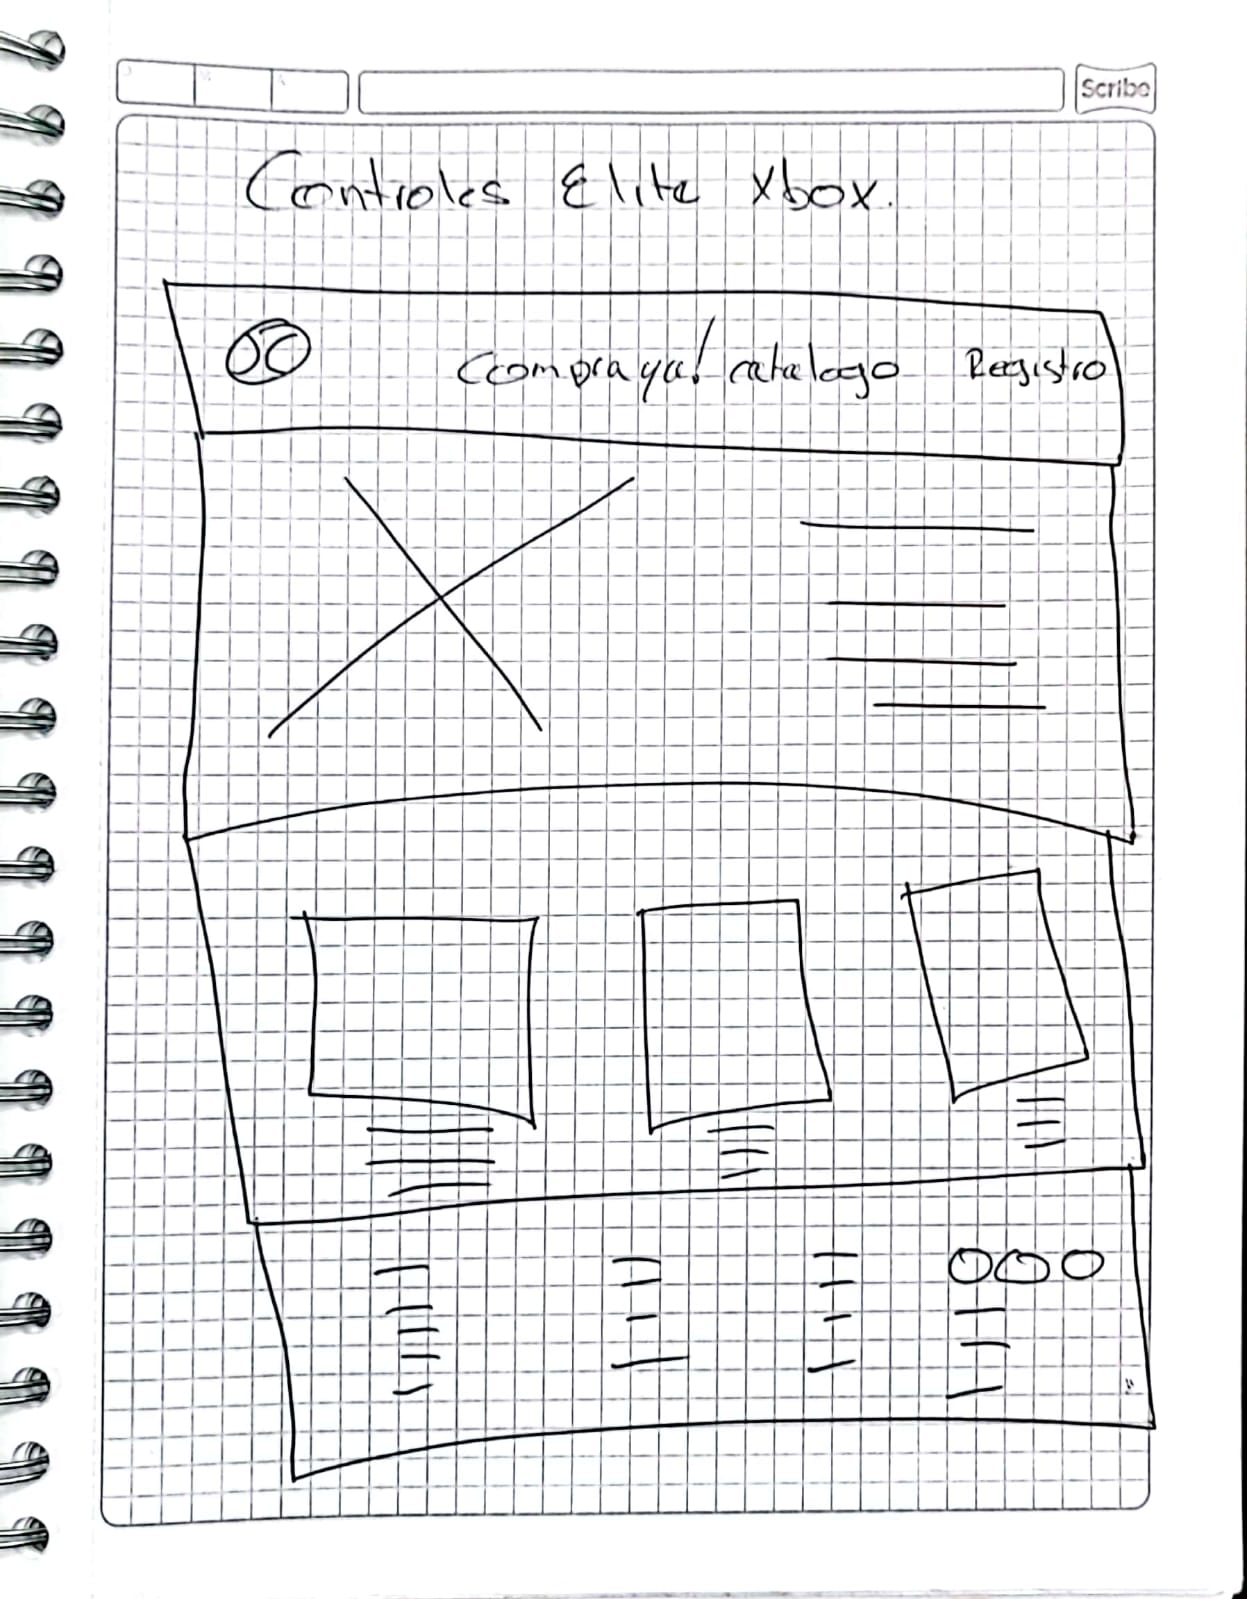 Scribe
Controles Elite Xbox.
Compra ya! catalogo Registro